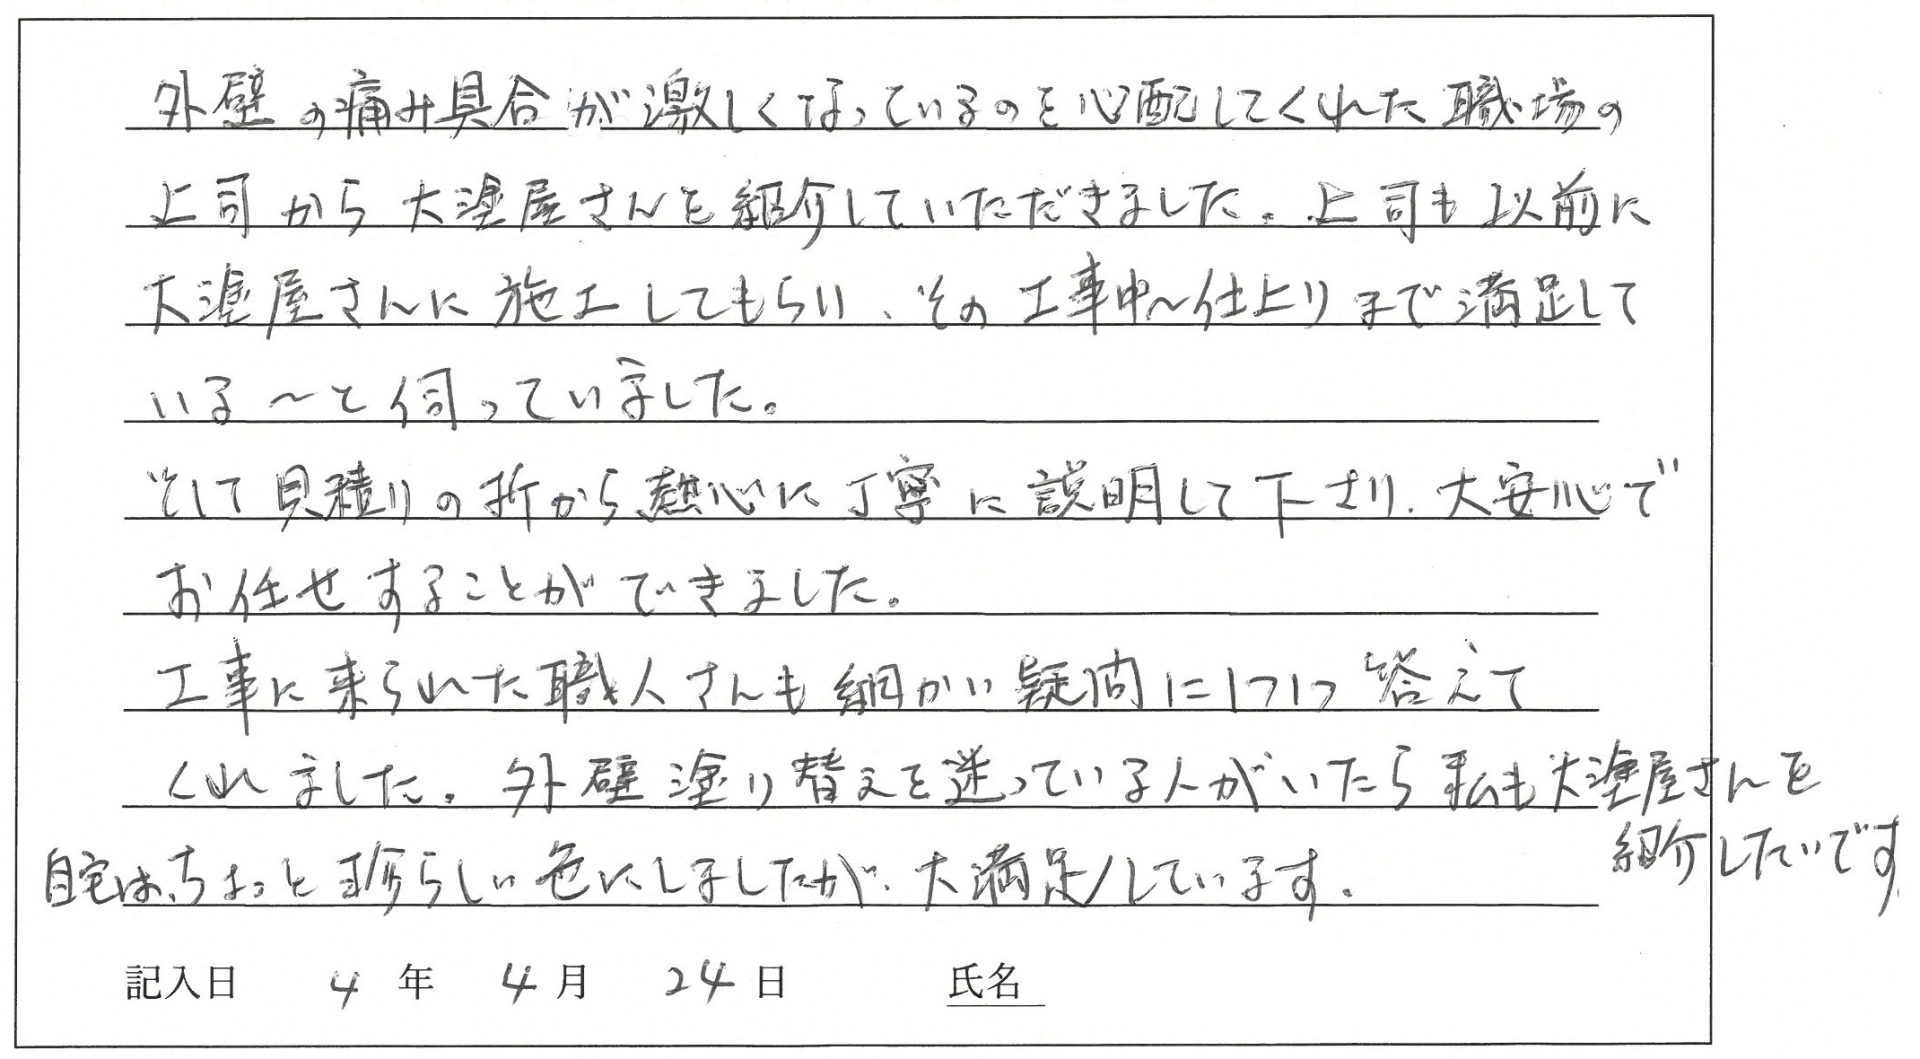 外壁の痛み具合が激しくなっているのを心配してくれた職場の
上司から大塗屋さんを紹介していただきました。上司も以前に
大塗屋さんに施工してもらい、その工事中〜仕上りまで満足して
いる〜と伺っていました。
そして見積りの折から熱心に丁寧に説明して下さり、大安心で
お任せすることができました。
工事に来られた職人さんも細かい疑問に1つ1つ答えて
くれました。外壁塗り替えを迷っている人がいたら私も大塗屋さんを
紹介したいです
自宅は、ちょっと珍らしい色にしましたが、大満足しています。
記入日 4年 4月 24日 氏名